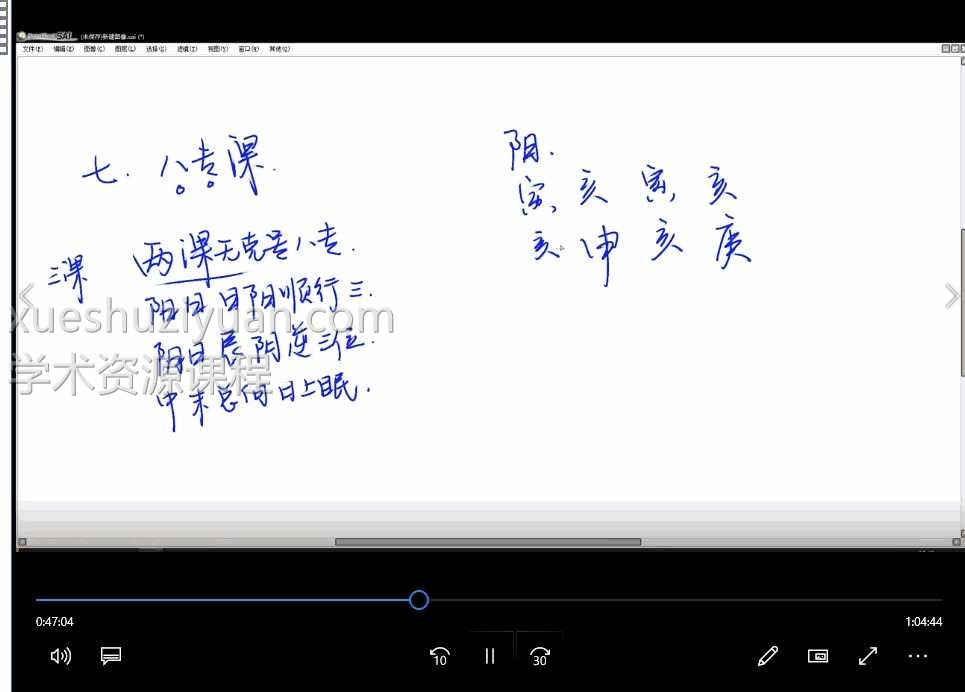 (未保存)新建图像.sai (*)
文件(F) 编辑(E) 图像(C) 图层(L) 选择(S) 滤镜(T) 视图(V) 窗口(W) 其他(O)
七. 八专课.
三课
两课无克号八专.
阳日日阳顺行三.
阴日辰阴逆三位.
中末总向日上眠.
阳.
寅, 亥 寅, 亥
亥 申 亥 庚
xueshuziyuan.com
学术资源课程
0:47:04
1:04:44
10
30